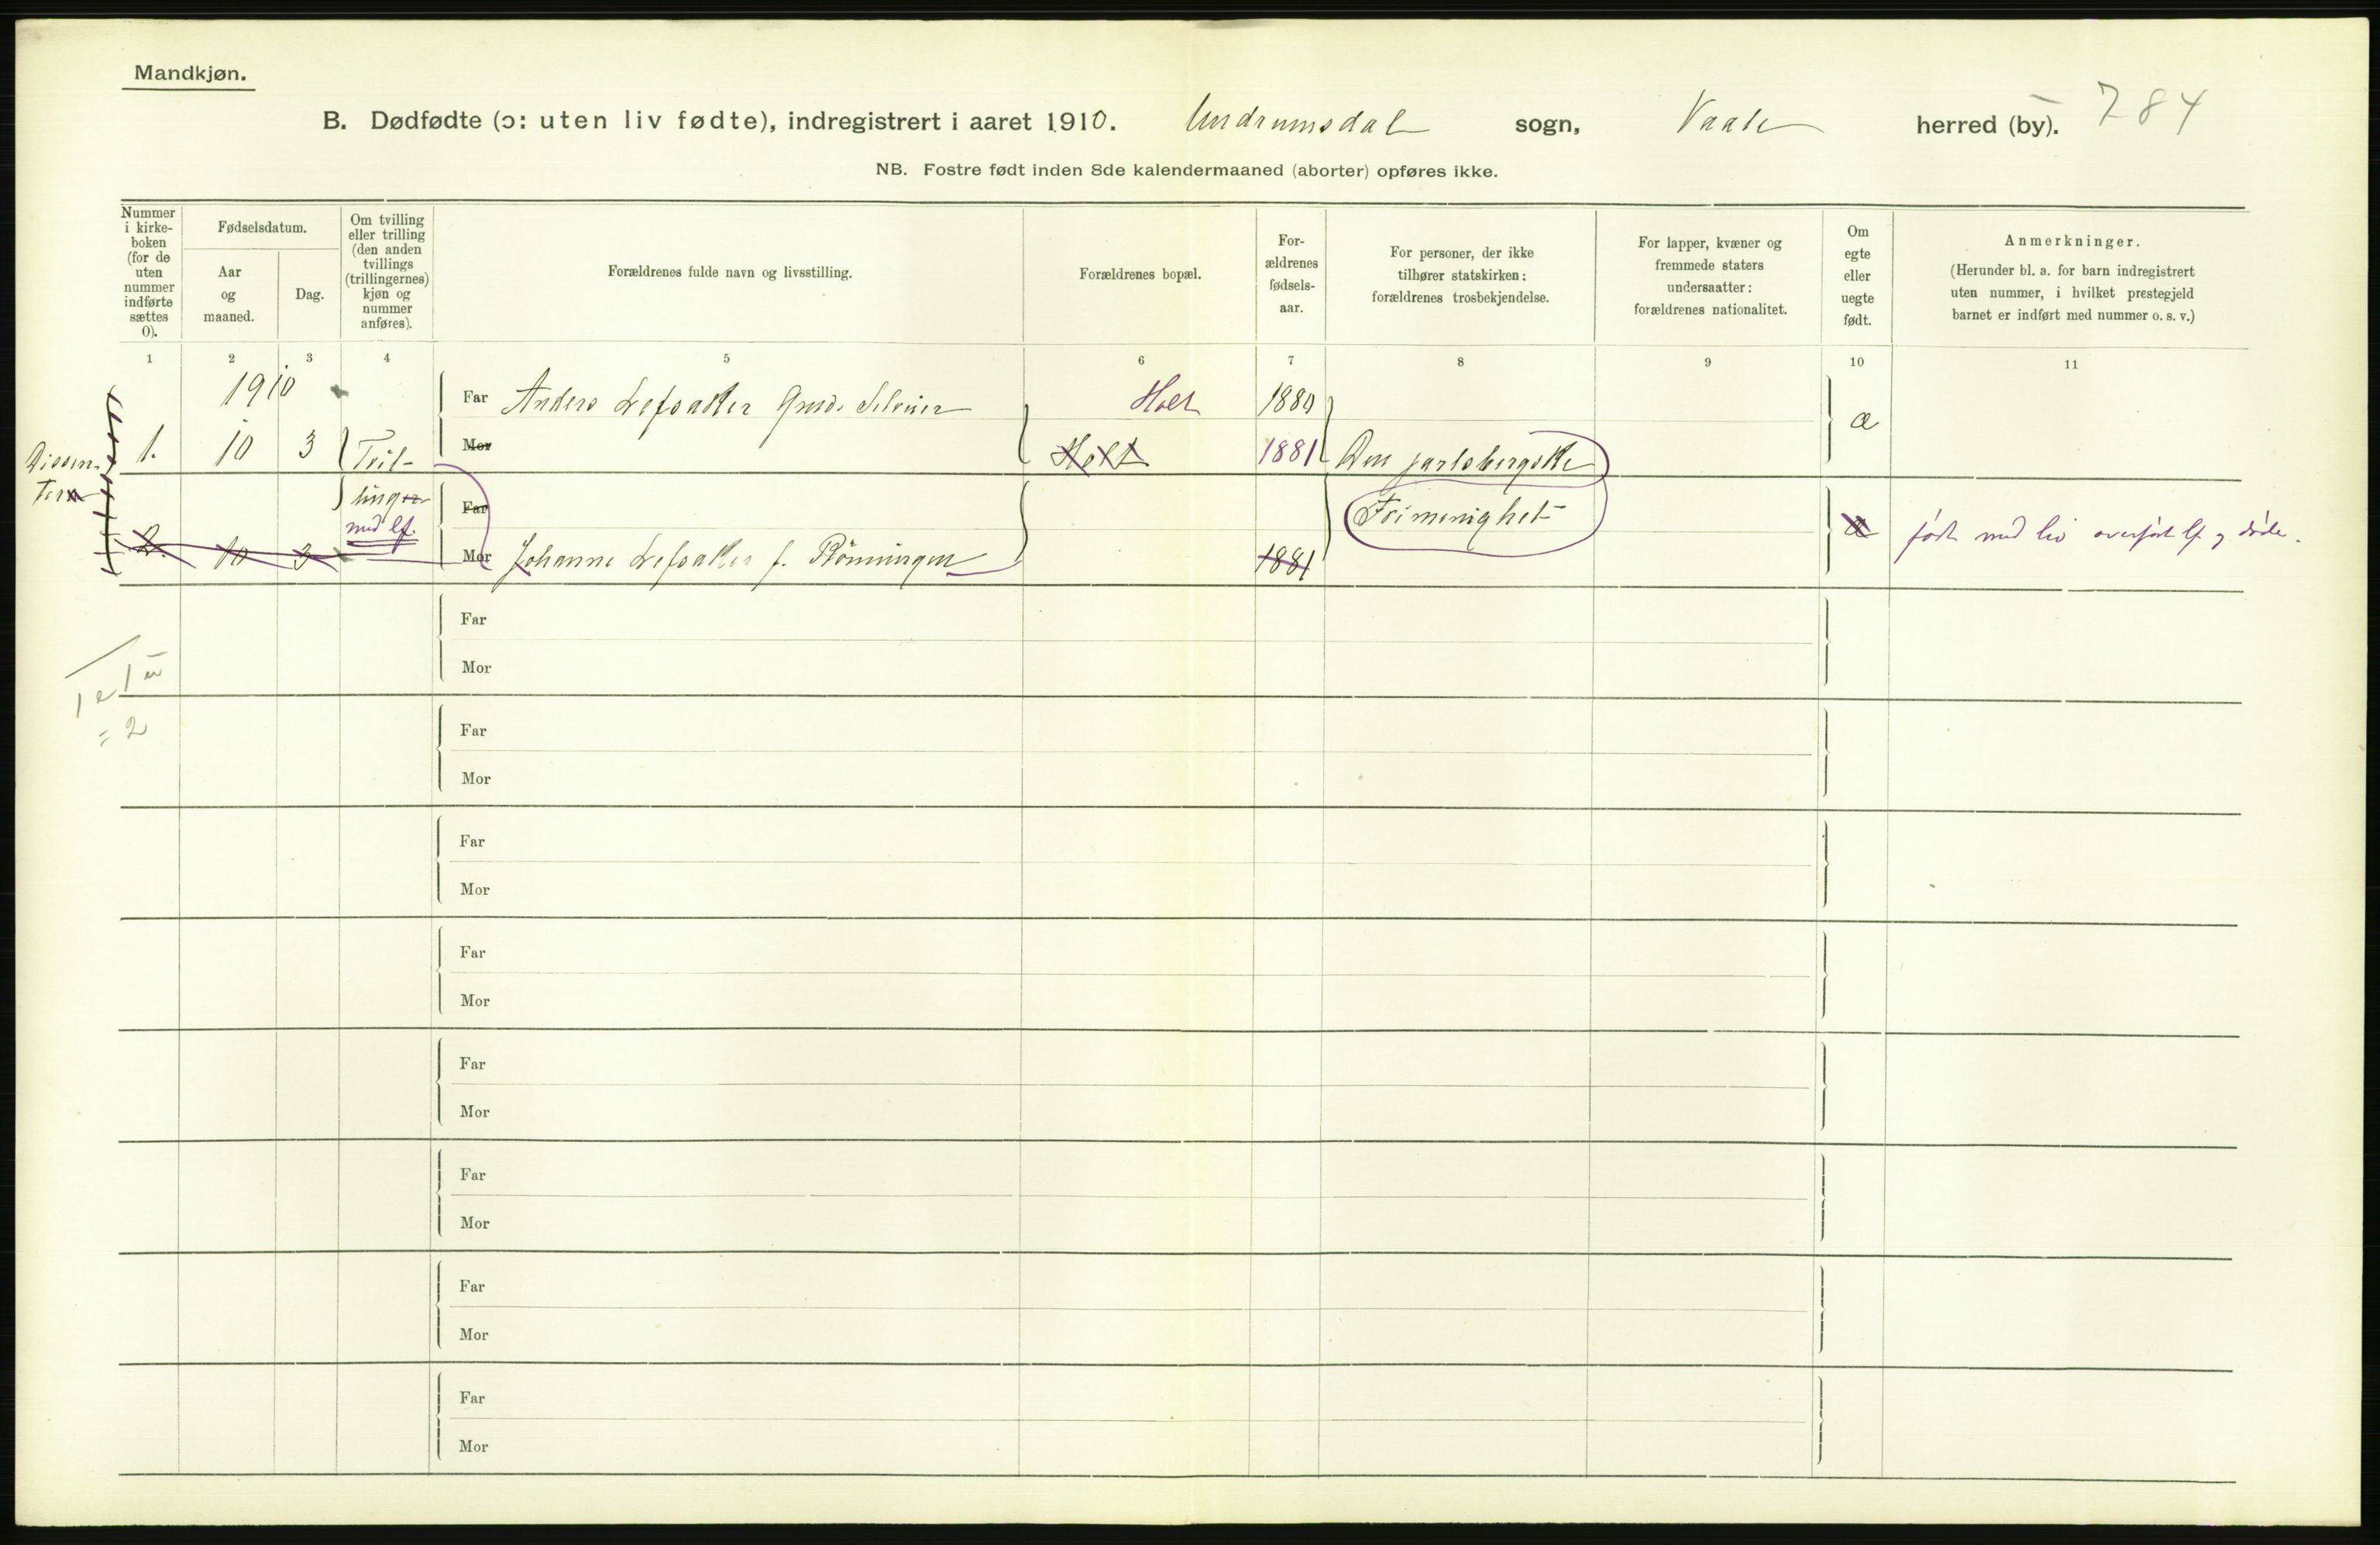 Mandkjøn.
B. Dødfødte (ɔ: uten liv fødte), indregistrert i aaret 1910. Undrumsdal sogn, Vaale herred (by). 784
NB. Fostre født inden 8de kalendermaaned (aborter) opføres ikke.
Nummer
i kirke-
boken
(for de
uten
nummer
indførte
sættes
0).
Fødselsdatum.
Aar
og
maaned.
Dag.
Om tvilling
eller trilling
(den anden
tvillings
(trillingernes)
kjøn og
nummer
anføres).
Forældrenes fulde navn og livsstilling.
Forældrenes bopæl.
For-
ældrenes
fødsels-
aar.
For personer, der ikke
tilhører statskirken:
forældrenes trosbekjendelse.
For lapper, kvæner og
fremmede staters
undersaatter:
forældrenes nationalitet.
Om
egte
eller
uegte
født.
Anmerkninger.
(Herunder bl. a. for barn indregistrert
uten nummer, i hvilket prestegjeld
barnet er indført med nummer o. s. v.)
1 2 3 4 5 6 7 8 9 10 11
1910
Far Anders Lefsaker Holt 1880 æ
Dissen- 1. 10 3 Tvil- Mor Holt 1881 Den jarlsbergske
ter linger Far Frimenighet
med lf.
2. 10 3 Mor Johanne Lefsaker f. Rønningen 1881 æ født med liv overført lf og døde.
Far
Mor
1 e 1 u
= 2
Far
Mor
Far
Mor
Far
Mor
Far
Mor
Far
Mor
Far
Mor
Far
Mor